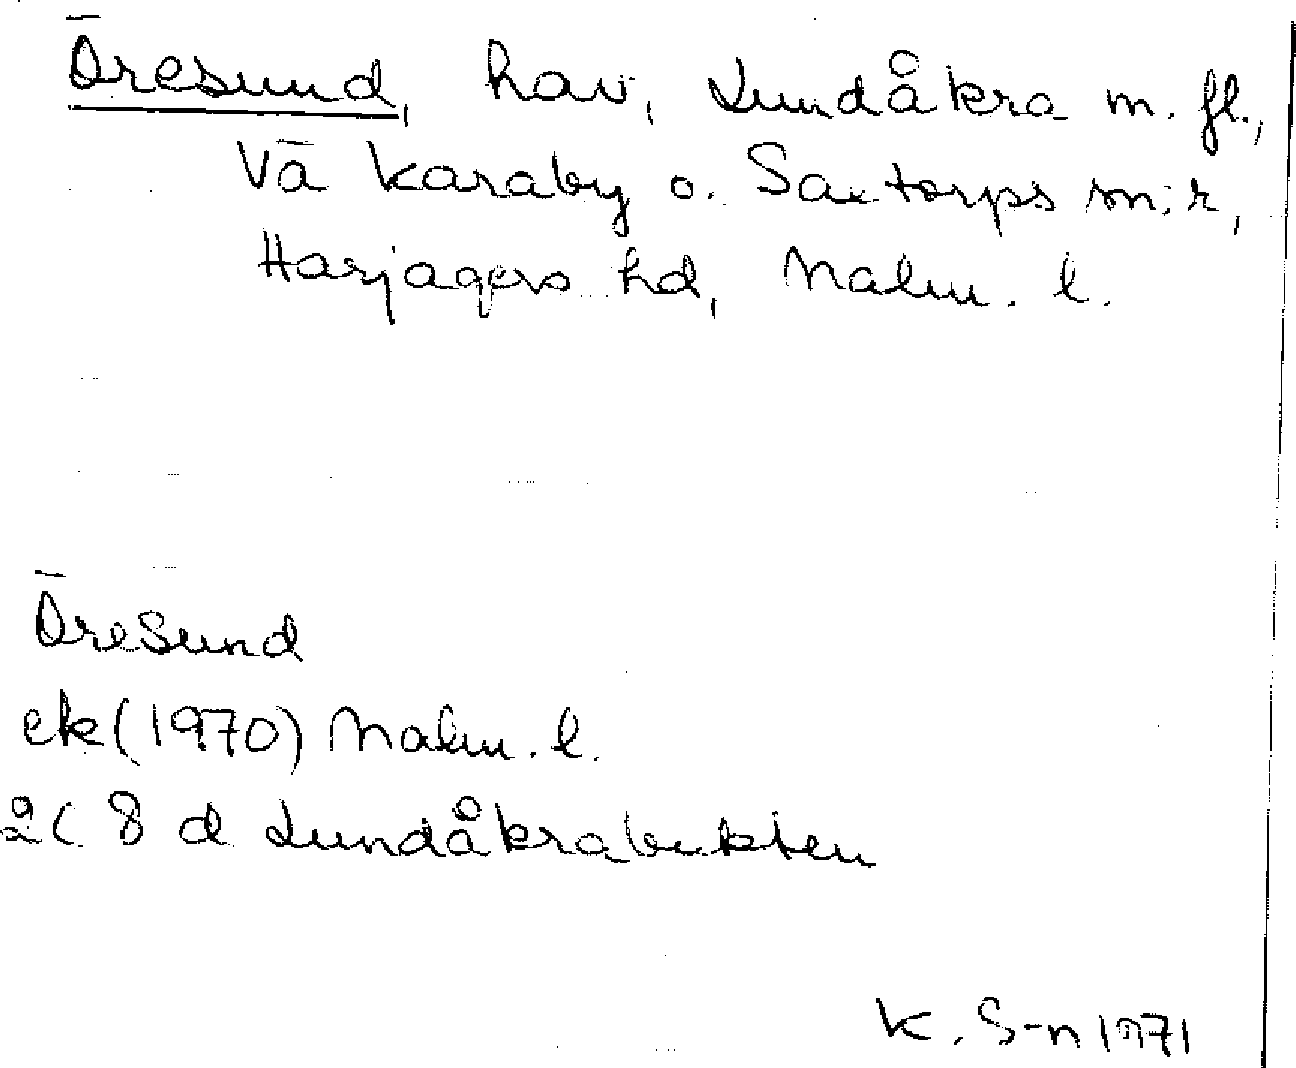 Öresund, hav, Lundåkra m. fl.,
Vä Karaby o. Saxtorps sn:r,
Harjagers hd, Malm. l.
Öresund
ek (1970) Malm. l.
2C 8 d Lundåkrabukten
K. S-n 1971